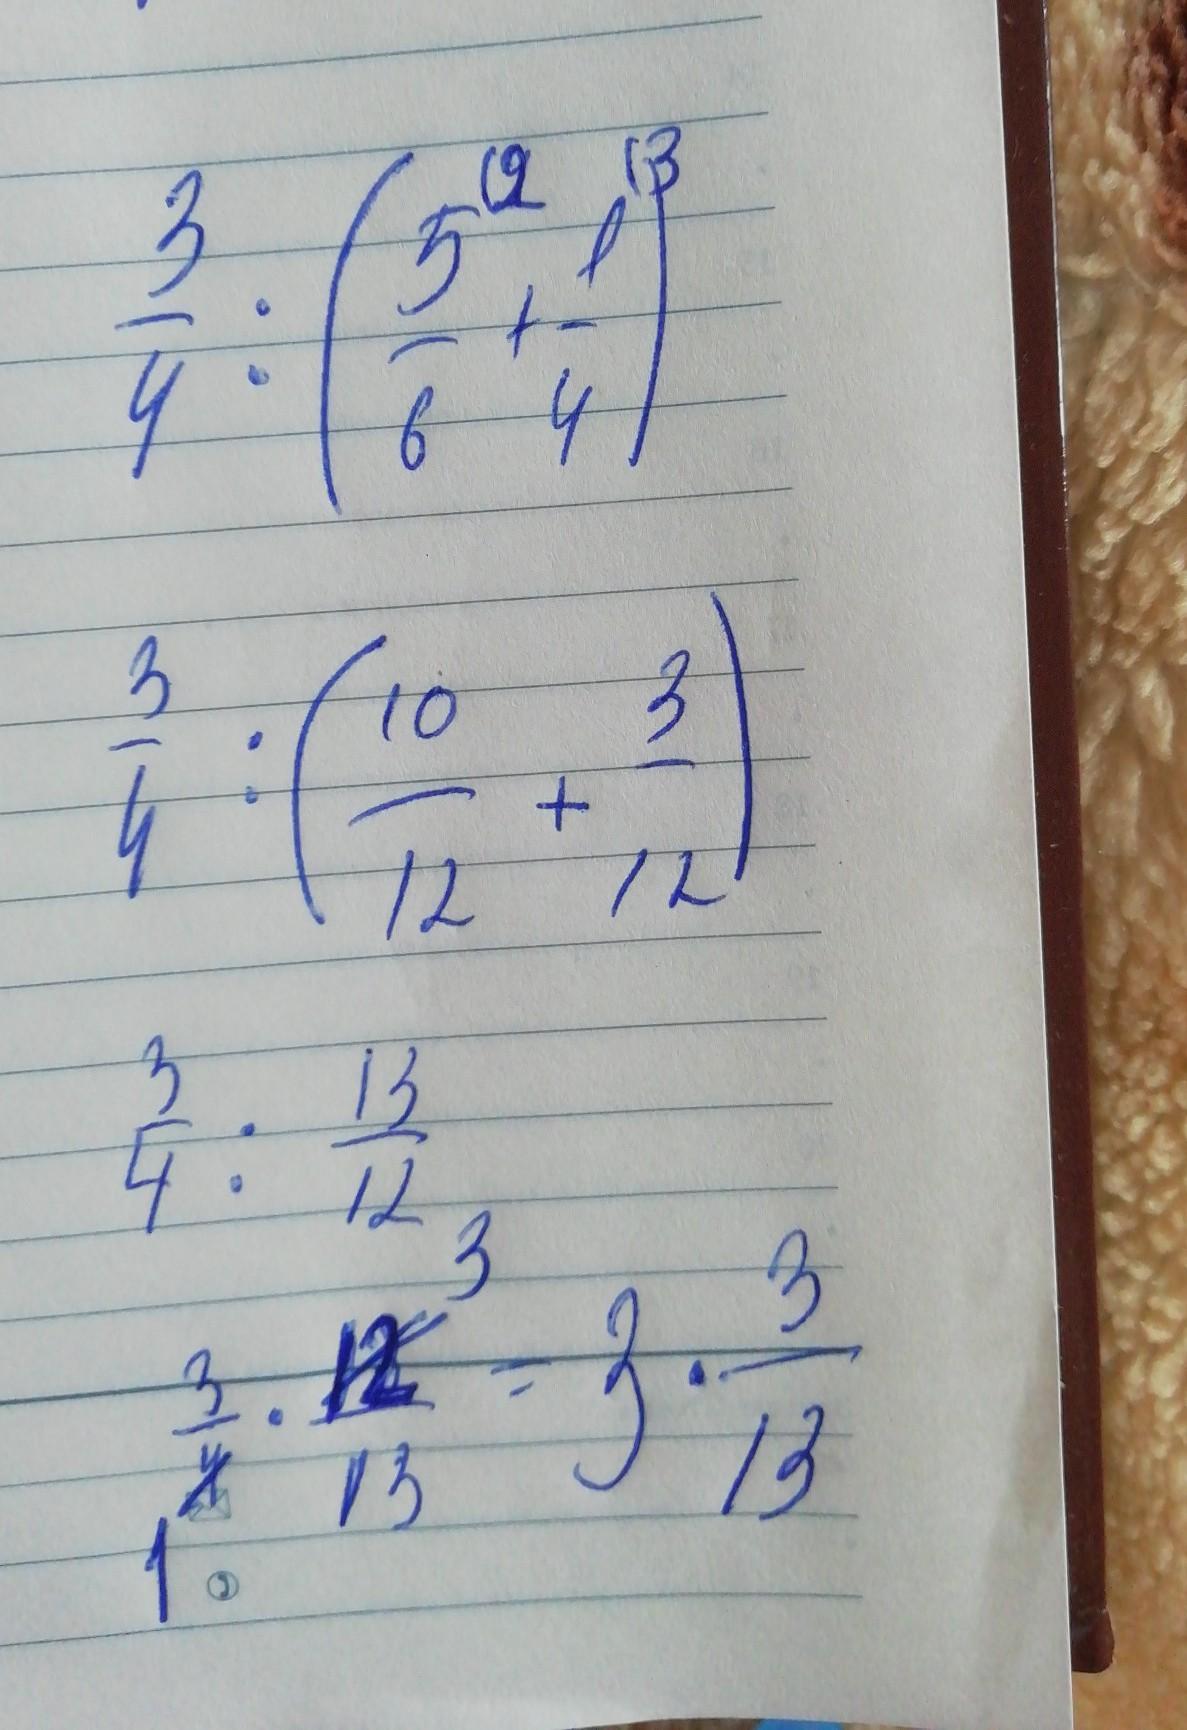 3/4 : (5/6 ⁽² + 1/4 ⁽³)
3/4 : (10/12 + 3/12)
3/4 : 13/12
3/4 1 · 12/13 3 = 3 · 3/13